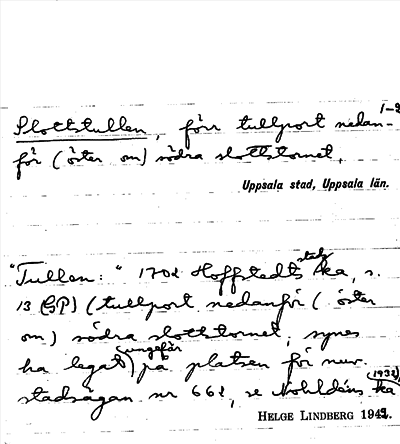 1-2
Slottstullen, förr tullport nedan-
för (öster om) södra slottstornet.
Uppsala stad, Uppsala län.
"Tullen:" 1702 Hoffstedts stads ka, s.
13 (GP) (tullport nedanför (öster
om) södra slottstornet, synes
ha legat (ungefär) på platsen för nuv.
stadsägan nr 662, se Nohldéns ka (1932)
HELGE LINDBERG 1942.